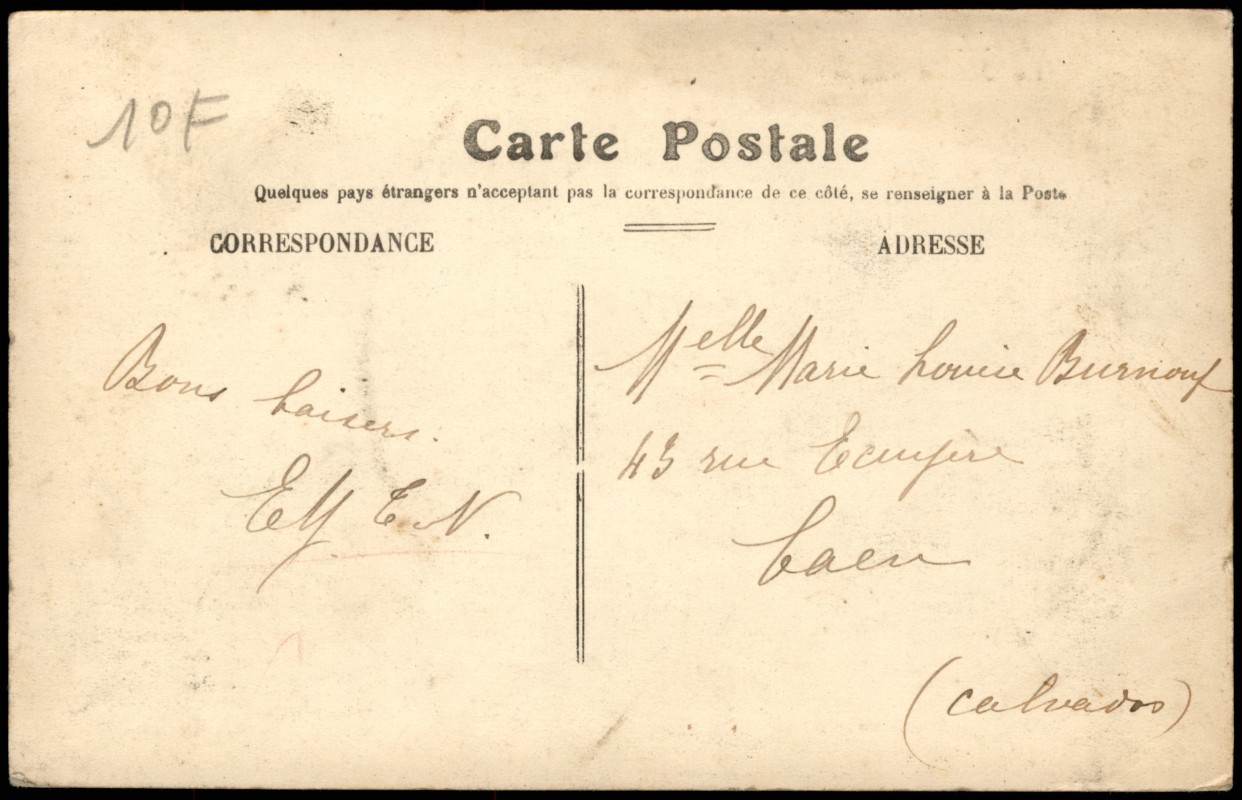 10F
Carte Postale
Quelques pays étrangers n'acceptent pas la correspondance de ce côté, se renseigner à la Poste
CORRESPONDANCE
ADRESSE
Bons baisers.
Melle Marie Louise Burnouf
43 rue Ecuyère
Caen
(Calvados)